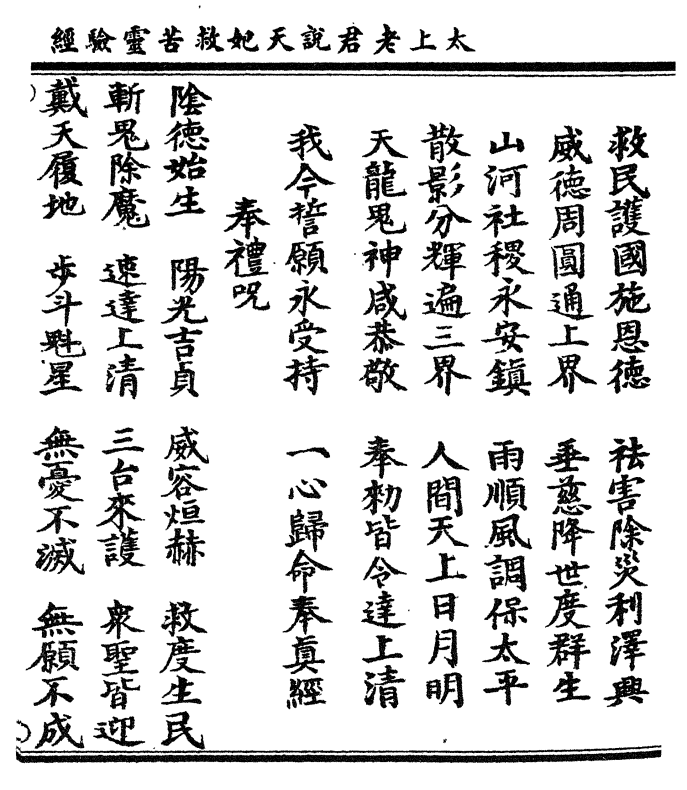 太上老君說天妃救苦靈驗經
救民護國施恩德　祛害除災利澤興
威德周圓通上界　垂慈降世度群生
山河社稷永安鎮　雨順風調保太平
散影分輝遍三界　人間天上日月明
天龍鬼神咸恭敬　奉勑皆令達上清
我今誓願永受持　一心歸命奉眞經
奉禮呪
陰德始生　陽光吉貞　威容烜赫　救度生民
斬鬼除魔　速達上清　三台來護　衆聖皆迎
戴天履地　步斗魁星　無憂不滅　無願不成